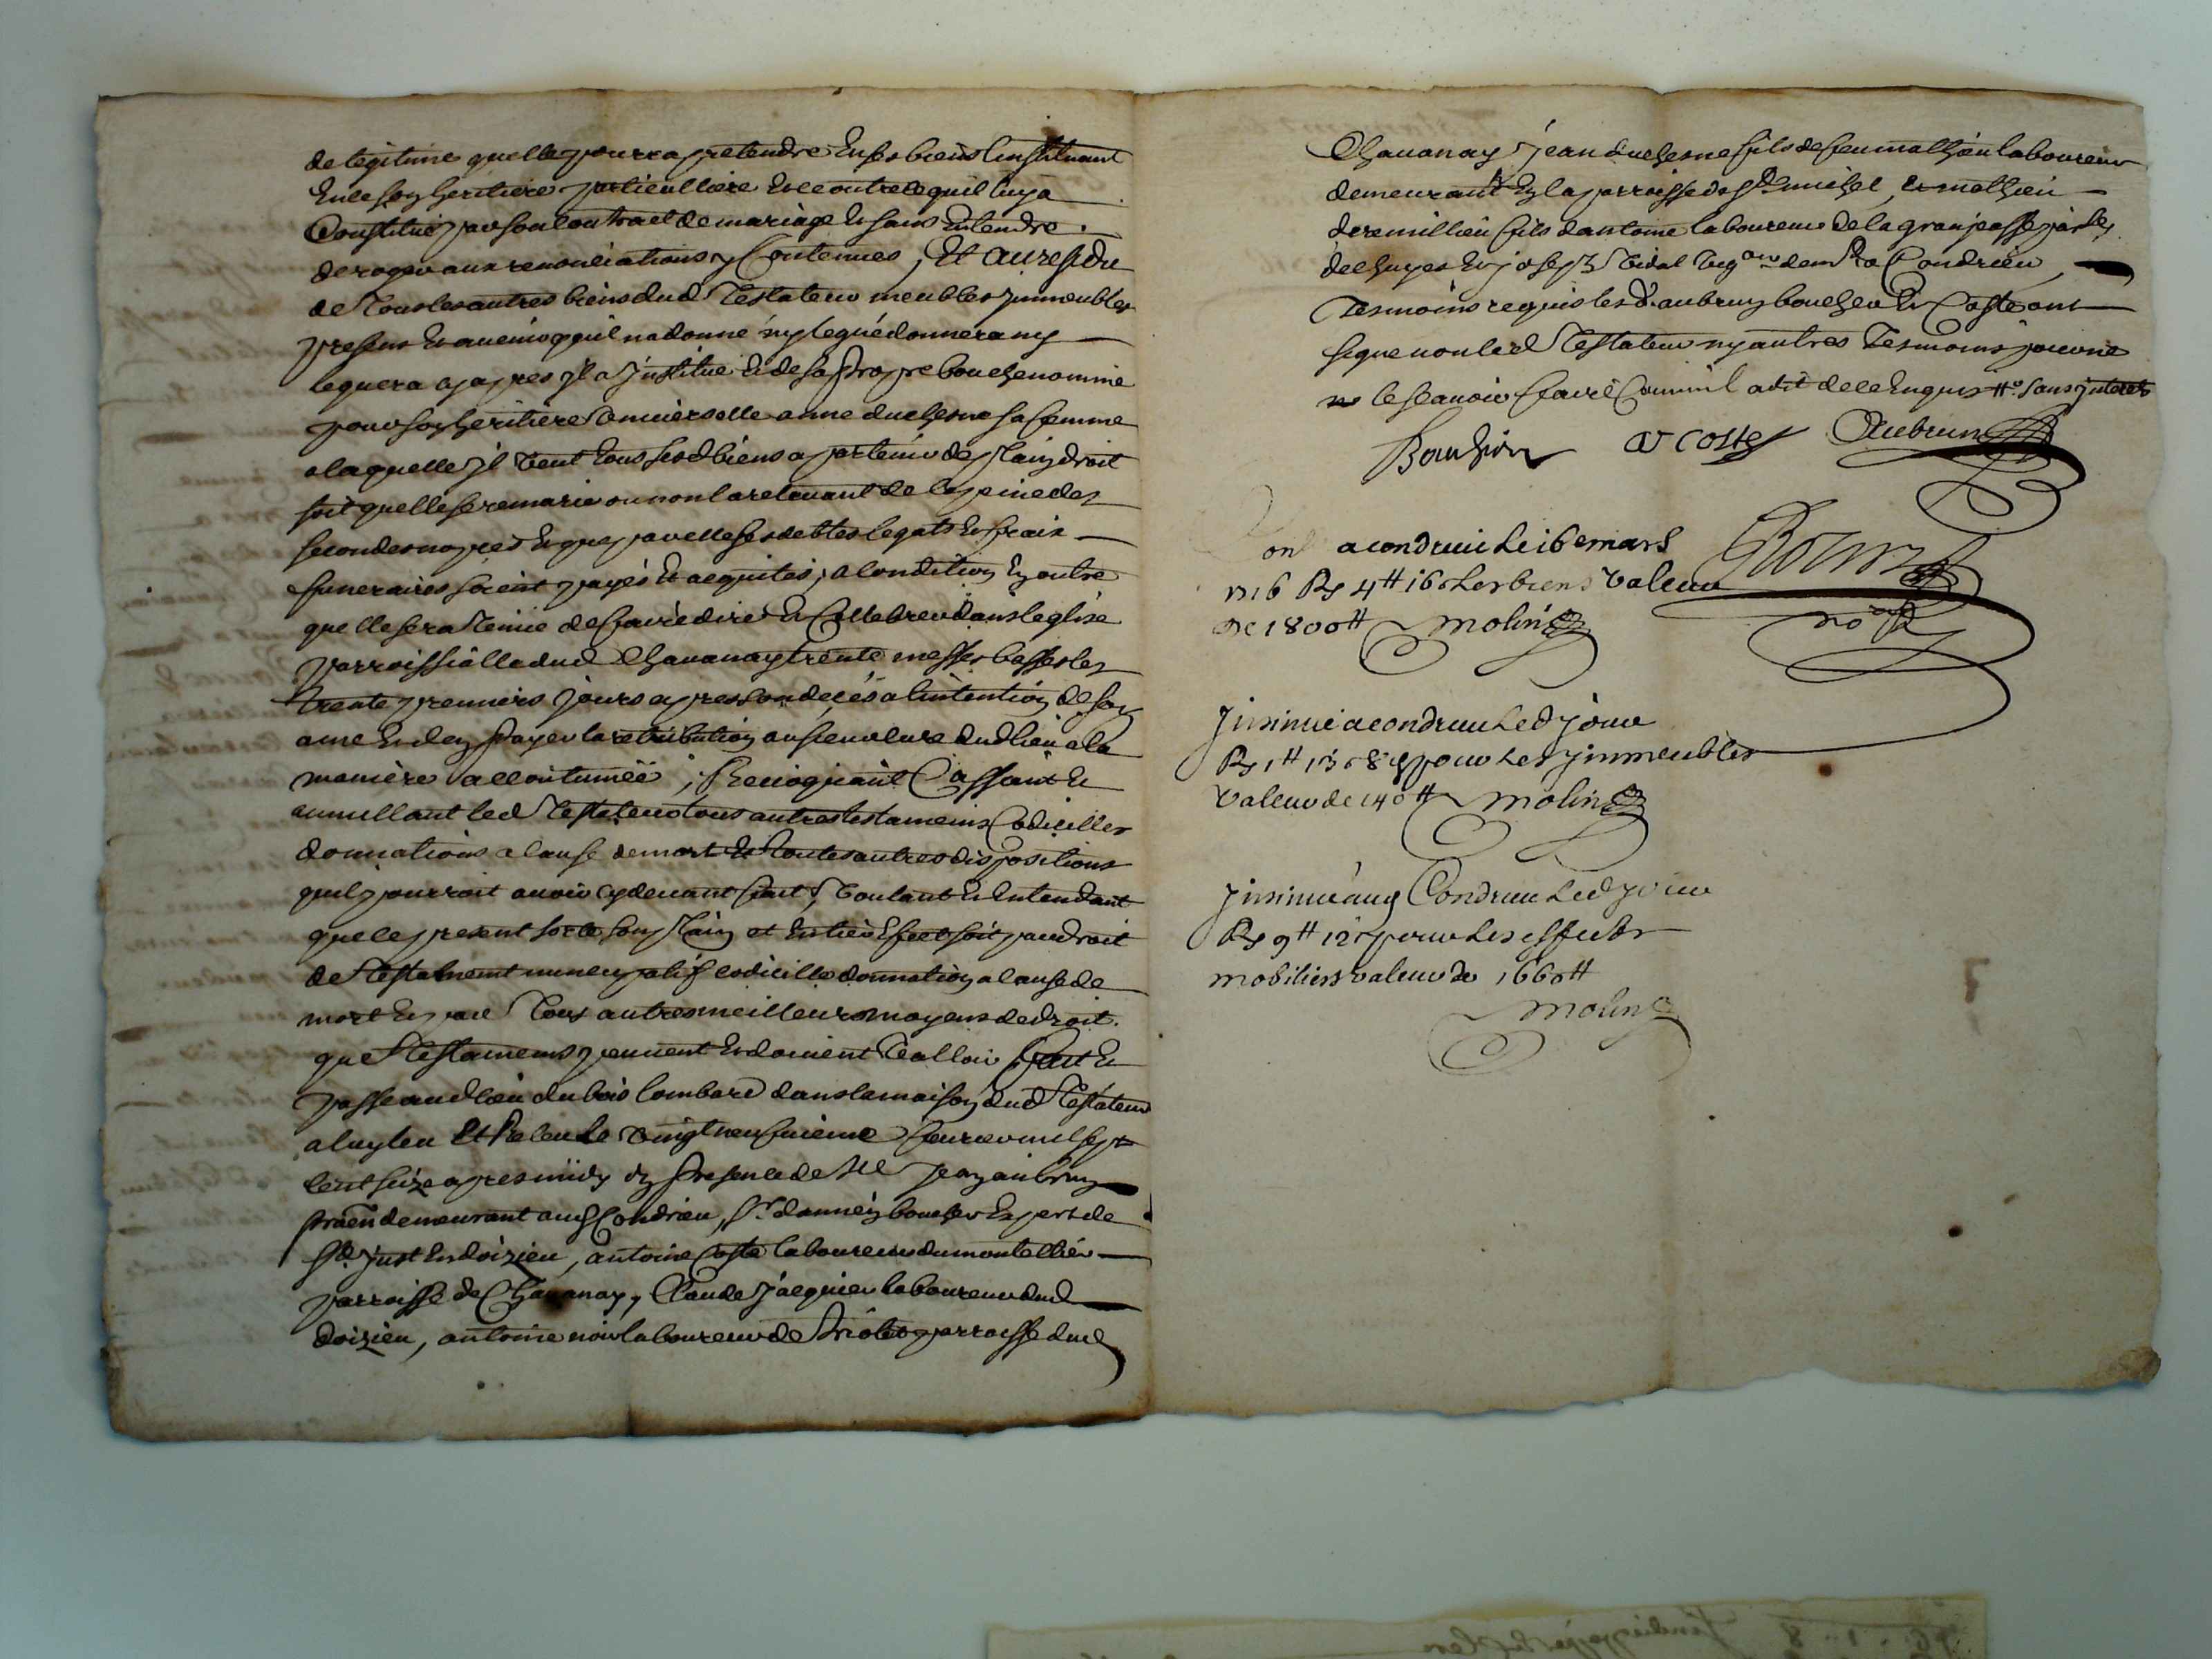 de legitime quelle pourra pretendre en ses biens linstituant
en ce son heritiere particulliere et ce outre ce quil luy a
Constitué par son Contract de mariage et sans entendre
deroger aux renonciations y Contenues, Et au residu
de tous les autres biens dud Testateur meubles immeubles
presens et avenir quil na donné ny legué donnera ny
leguera cy apres il a Institué et de sa propre bouche nommé
pour son heritiere universelle anne duchesne sa femme
a laquelle il veut tous sesd biens apartenir de plain droit
soit quelle se remarie ou non la relevant de la peine des
secondes nopces et que par elle ses debtes legats et frais
funeraires soient payés et acquités, a Condition en outre
quelle sera tenue de faire dire et Cellebrer dans leglise
parroissialle dud Chavanay trente messes basses les
trente premiers jours apres son decés a lintention de son
ame et den payer la retribution au sieur cure dud lieu a la
maniere accoutumée, Revoquant Cassant et
annullant led Testateur tous autres testamens Codicilles
donnations a cause de mort et toutes autres dispositions
quil pourroit avoir cy devant fait, voulant et entendant
que le present sorte son plain et entier effect soit par droit
de Testament nuncupatif codicille donnation a cause de
mort et par tous autres meilleurs moyens de droit
que Testamens peuvent et doivent valloir fait et
passé aud lieu du bois lombard dans la maison dud Testateur
a luy leu Et Releu Le vingt neufvieme fevrier mil sept
cent seize apres midy en presence de Me Jean aubrun
praen demeurant aud Condrieu, sr. boucher Expert de
St. Just en doizieu, antoine Coste laboureur du montellier
parroisse de Chavanay, Claude Jacquier laboureur dud
doizieu, antoine noir laboureur de parroisse dud
Chavanay Jean duchesne fils de feu mathieu laboureur
demeurant en la parroisse de St michel, et mathieu
deremillieu fils dantoine laboureur de la
et joseph vidal vigon dem a Condrieu
Tesmoins requis lesd. aubrun boucher et Coste ont
signe non led Testateur ny autres Tesmoins pour ne
le scavoir faire Comme il a dit de ce enquis sans interets
Bouchier A COSTE Aubrun
Conl a condrieu Le 16e mars
1716 Rs 4₶ 16s Les biens valeur
De 1800₶ Molin
no re
Insinué a condrieu Led jour
Rs 1₶ 13s 8d pour Les immeubles
valeur de 140₶ Molin
Insinué aud Condrieu Led jour
Rs 9₶ 12s pour Les effects
mobiliers valeur de 1660₶
Molin